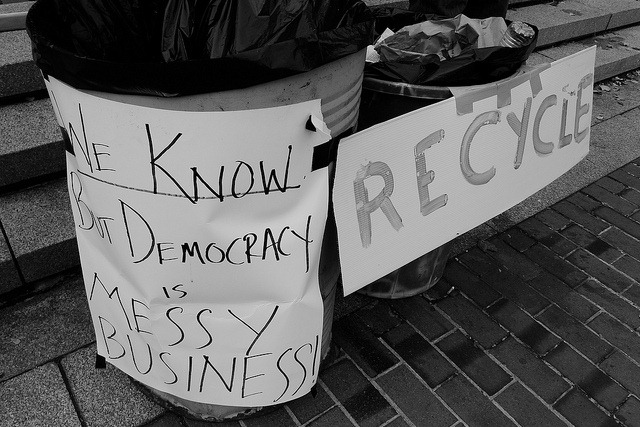 WE KNOW
BUT DEMOCRACY
IS
MESSY
BUSINESS!
RECYCLE